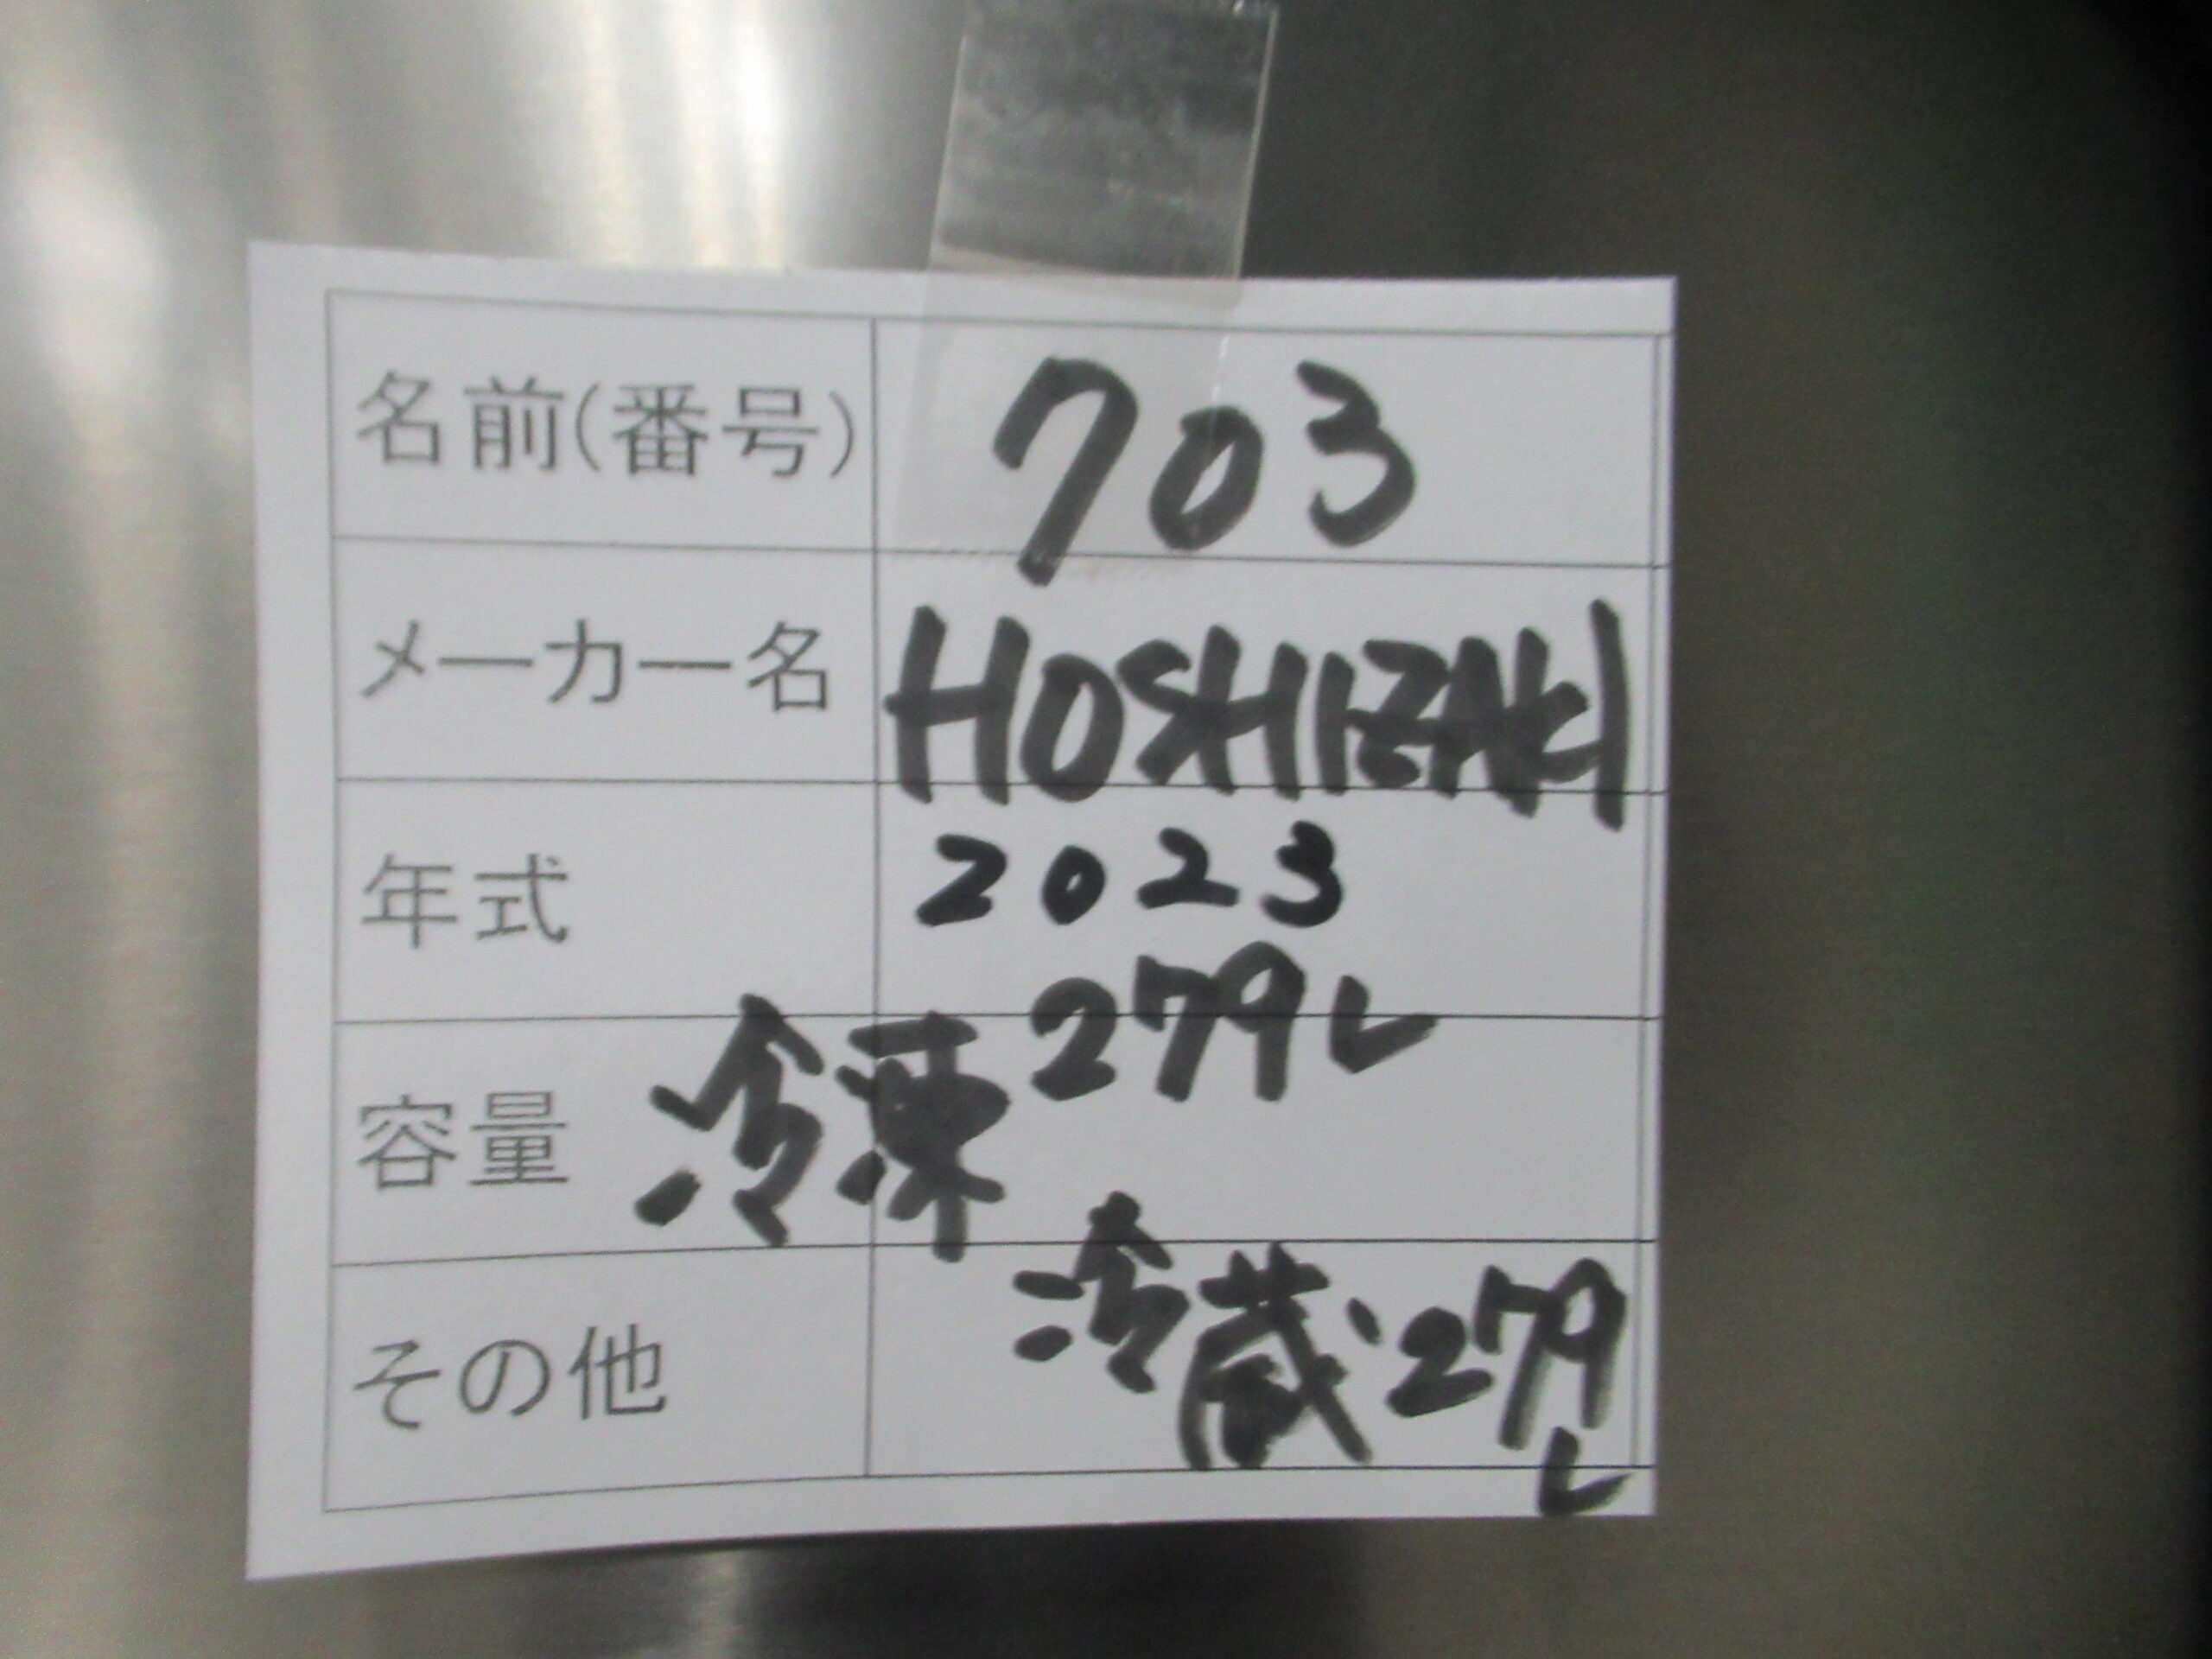 名前(番号) 703
メーカー名 HOSHIZAKI
年式 2023
容量 冷凍 279L
その他 冷蔵・279L